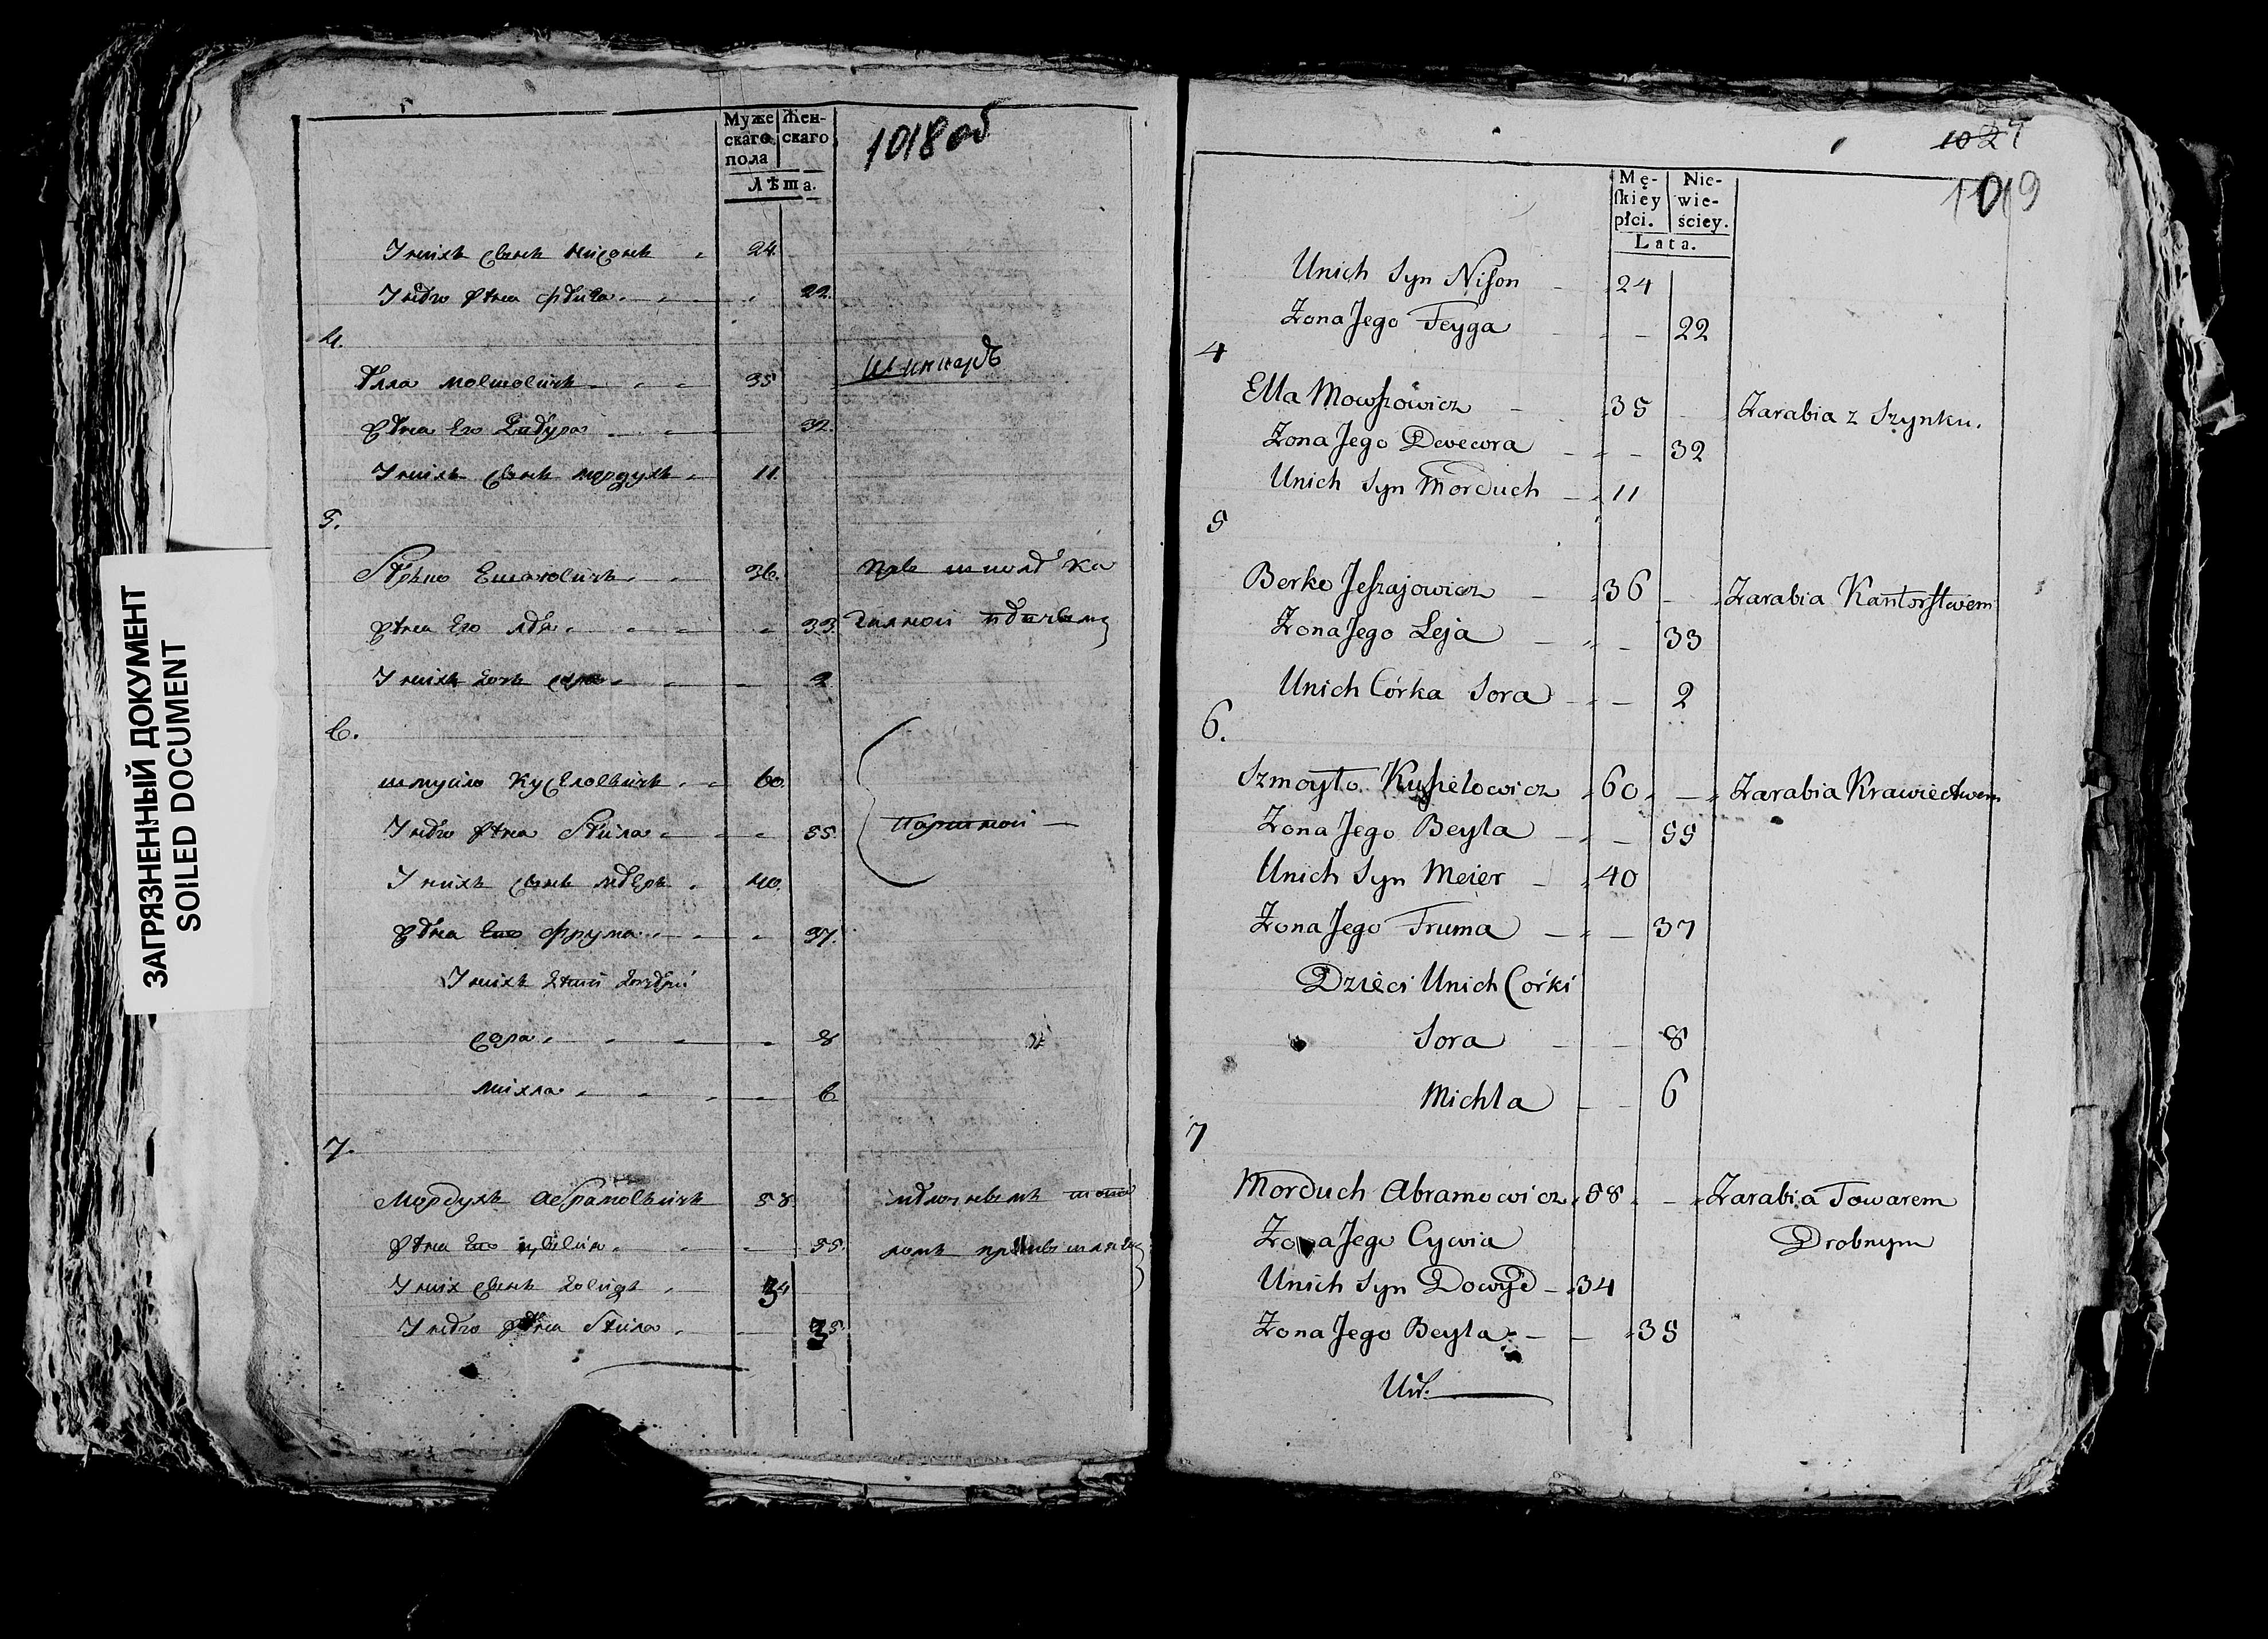 ЗАГРЯЗНЕННЫЙ ДОКУМЕНТ
SOILED DOCUMENT
Муже Жен-
скаго скаго
пола
Лѣта.
1018 об
У нихъ сынъ Нисонъ 24.
У него жена Фейга 22.
4.
Элла Мовшовичъ 35 Шинкаръ
жена его 32.
У нихъ сынъ Мордухъ 11.
5.
Берко Ешаіовичъ 36. При школѣ ка
жена его Лея 33.
У нихъ дочь Сора 2
6.
Шмуйло Кусѣловичъ 60.
У него жена Бейла 55. Портной
У нихъ сынъ Мееръ 40.
жена его Фрума 37.
У нихъ дѣти дочери
Сора 8
Михла 6
7.
Мордухъ Абрамовичъ 58. мелочнымъ това
жена его Цывія 55. ромъ
У них сынъ Довидъ 34
У него жена Бейла 35.
1024
1019
Mę- Nie-
ſkiey wie-
płci. ściey.
Lata.
Unich Syn Nison 24
Żona Jego Feyga 22
4
Ella Mowszowicz 35 Zarabia z Szynku.
Żona Jego Dwewra 32
Unich Syn Morduch 11
5
Berko Jeszajowicz 36 Zarabia Kantorstwem
Żona Jego Leja 33
Unich Córka Sora 2
6.
Szmoyło Kusielowicz 60 Zarabia Krawiectwem
Żona Jego Beyla 55
Unich Syn Meier 40
Żona Jego Fruma 37
Dzieci Unich Córki
Sora 8
Michla 6
7
Morduch Abramowicz 58 Zarabia Towarem
Żona Jego Cywia Drobnym
Unich Syn Dowyd 34
Żona Jego Beyla 35